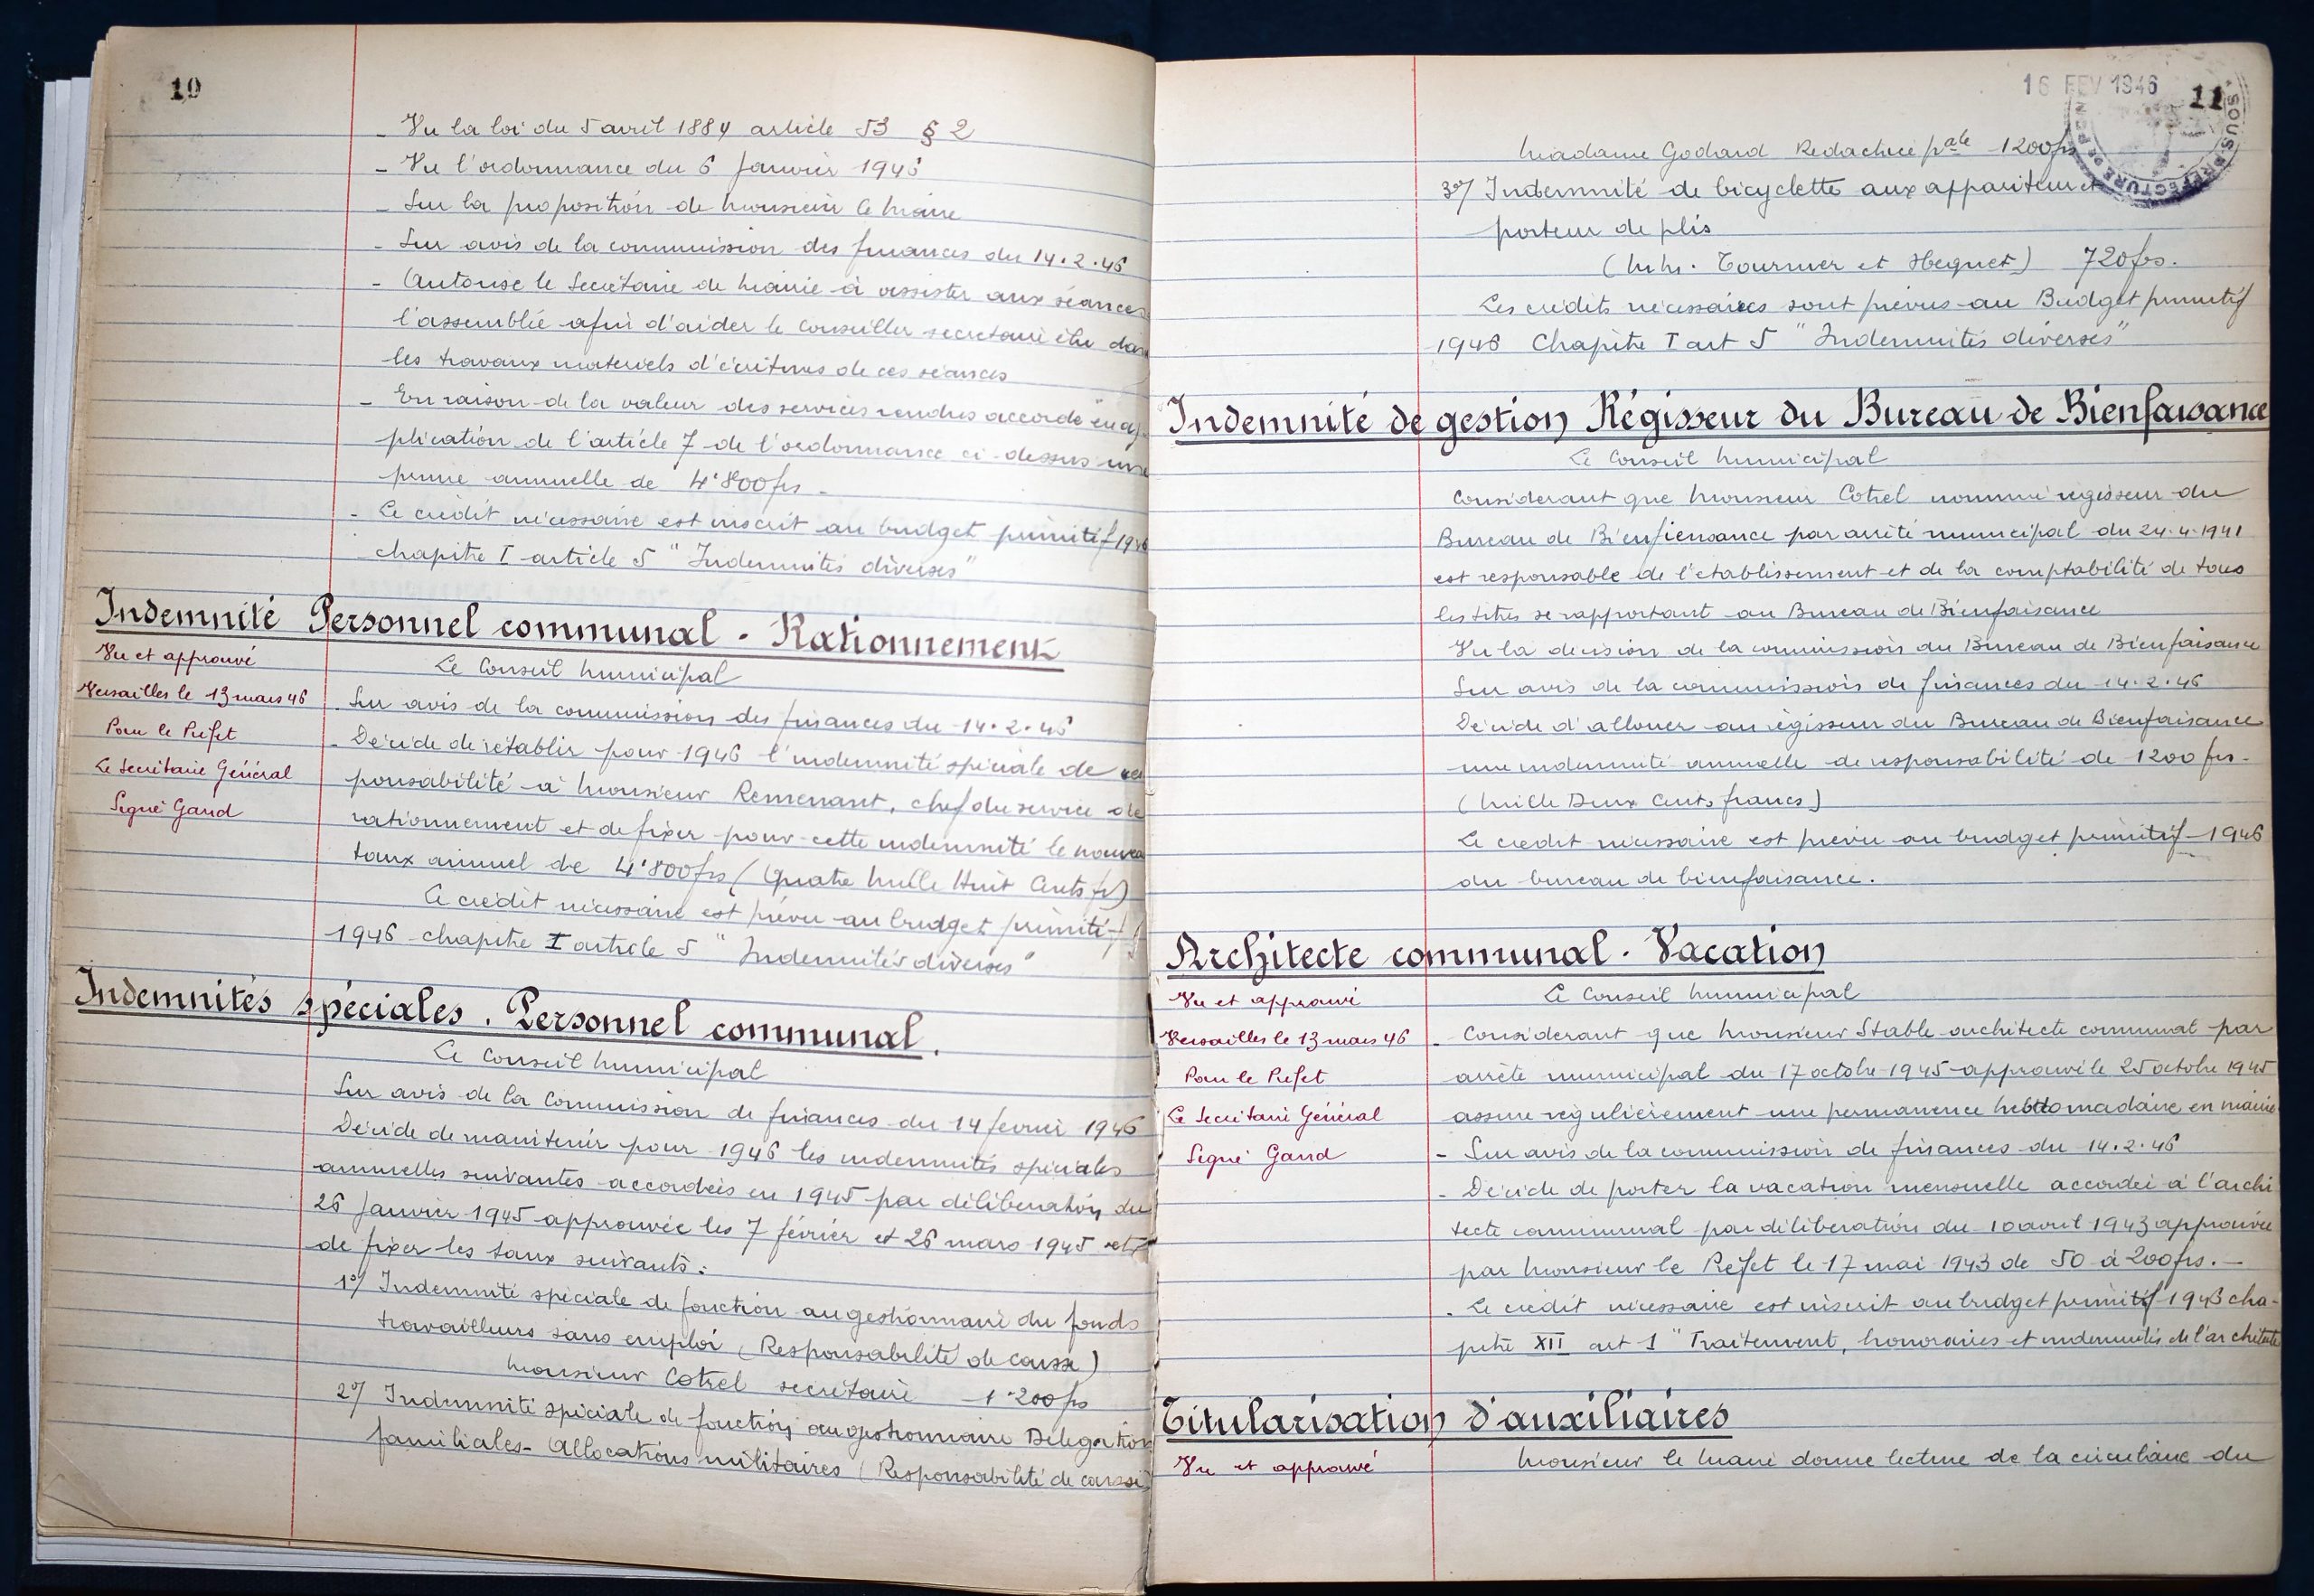 10
- Vu la loi du 5 avril 1884 article 53 § 2
- Vu l'ordonnance du 6 Janvier 1945
- Sur la proposition de Monsieur le Maire
- Sur avis de la commission des finances du 14.2.46
- Autorise le Secrétaire de Mairie à assister aux séances
l'assemblée afin d'aider le Conseiller secretaire élu dans
les travaux materiels d'écritures de ces séances
- En raison de la valeur des services rendus accorde en ap-
plication de l'article 7 de l'ordonnance ci-dessus une
prime annuelle de 4'800frs -
- Le crédit nécessaire est inscrit au budget primitif 1946
chapitre I article 5 "Indemnités diverses"
Indemnité Personnel communal - Rationnement
Vu et approuvé
Versailles le 13 mars 46
Pour le Préfet
Le Secrétaire Général
Signé Gand
Le Conseil Municipal
- Sur avis de la commission des finances du 14.2.46
- Décide de rétablir pour 1946 l'indemnité spéciale de res
ponsabilité à Monsieur Remenant, chef du service de
rationnement et de fixer pour cette indemnité le nouveau
taux annuel de 4'800frs (Quatre Mille Huit Cents fr)
Le crédit nécessaire est prévu au budget primitif
1946 chapitre I article 5 "Indemnités diverses"
Indemnités spéciales. Personnel communal.
Le Conseil Municipal
Sur avis de la Commission de finances du 14 fevrier 1946
Décide de maintenir pour 1946 les indemnités spéciales
annuelles suivantes accordées en 1945 par délibération du
26 Janvier 1945 approuvée les 7 février et 26 mars 1945 et
de fixer les taux suivants :
1°/ Indemnité spéciale de fonction au gestionnaire du fonds
travailleurs sans emploi (Responsabilité de caisse)
Monsieur Cotrel secrétaire 1'200frs
2°/ Indemnité spéciale de fonction au gestionnaire Délégation
familiales - Allocations militaires (Responsabilité de caisse
16 FEV 1946
11
SOUS-PREFECTURE DE
Madame Godard Redactrice pale 1200frs
3°/ Indemnité de bicyclette aux appariteur et
porteur de plis
(MM. Tournier et Hequet) 720frs.
Les crédits nécessaires sont prévus au Budget primitif
1946 Chapitre I art 5 "Indemnités diverses"
Indemnité de gestion Régisseur du Bureau de Bienfaisance
Le Conseil Municipal
Considerant que Monsieur Cotrel nommé régisseur du
Bureau de Bienfiensance par arrêté municipal du 24.4.1941
est responsable de l'etablissement et de la comptabilité de tous
les titres se rapportant au Bureau de Bienfaisance
Vu la decision de la commission du Bureau de Bienfaisance
Sur avis de la commission de finances du 14.2.46
Décide d'allouer au régisseur du Bureau de Bienfaisance
une indemnité annuelle de responsabilité de 1200 frs -
(Mille Deux Cents francs)
Le credit nécessaire est prévu au budget primitif 1946
du bureau de bienfaisance.
Architecte communal. Vacation
Vu et approuvé
Versailles le 13 mars 46
Pour le Prefet
Le Secrétaire Général
Signé Gand
Le Conseil Municipal
- Considerant que Monsieur Stable architecte communal par
arrêté municipal du 17 octobre 1945 approuvé le 25 octobre 1945
assure régulièrement une permanence hebdomadaire en mairie
- Sur avis de la commission de finances du 14.2.46
- Décide de porter la vacation mensuelle accordée à l'archi
tecte communal par délibération du 10 avril 1943 approuvée
par Monsieur le Préfet le 17 mai 1943 de 50 à 200frs. -
- Le crédit nécessaire est inscrit au budget primitif 1946 cha-
pitre XII art 1 "Traitement, honoraires et indemnités de l'architecte
Titularisation d'auxiliaires
Vu et approuvé
Monsieur le Maire donne lecture de la circulaire du